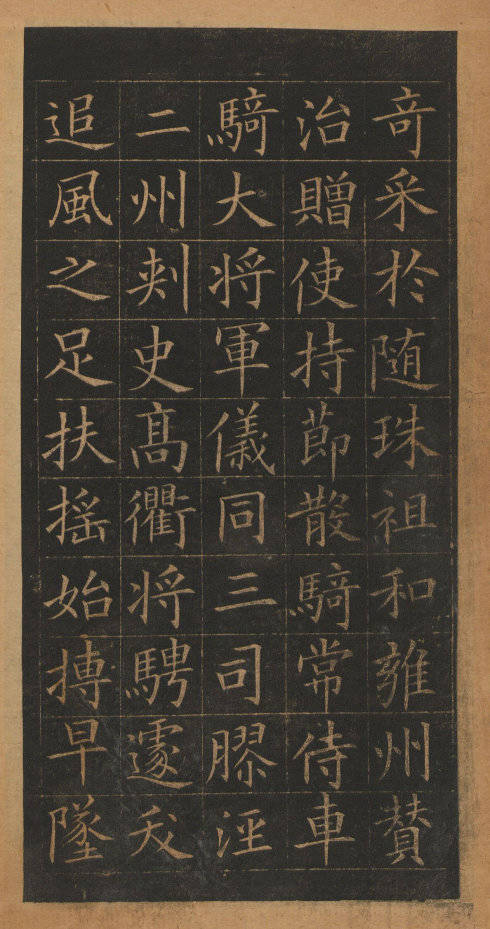 奇采於随珠祖和雍州賛
治贈使持節散騎常侍車
騎大将軍儀同三司膠涇
二州刺史髙衢将騁遽夭
追風之足扶摇始摶早墜